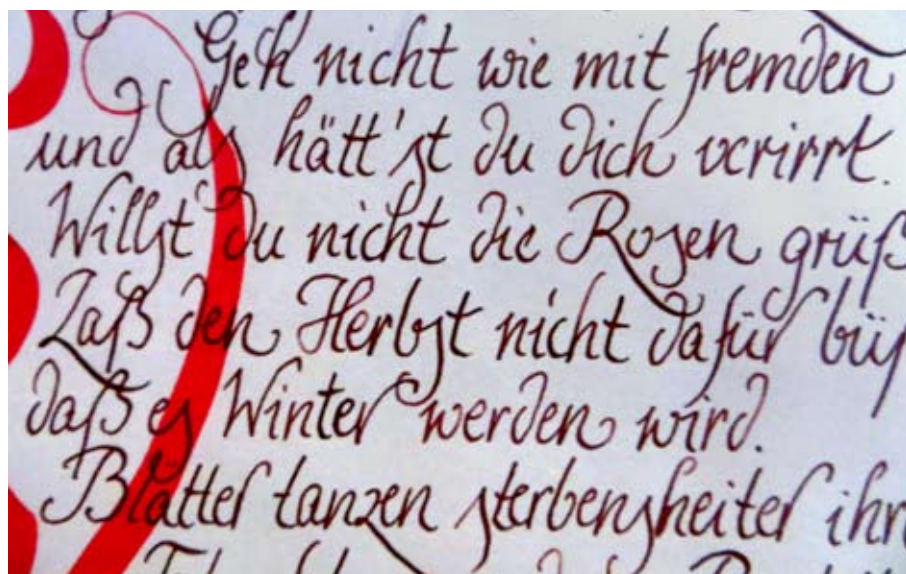 Geh nicht wie mit fremden
und als hätt'st du dich verirrt.
Willst du nicht die Rosen grüß
Laß den Herbst nicht dafür bü
daß es Winter werden wird.
Blätter tanzen sterbensheiter ihr